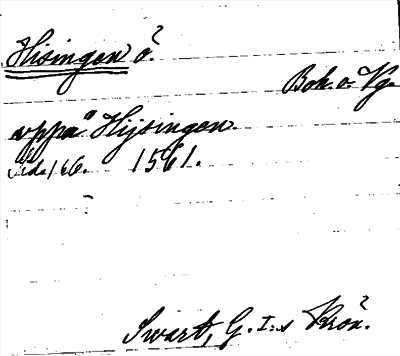 Hisingen ö.
Boh. o. Vg.
uppå "Hijsingen.
sid. 166. 1561.
Swart, G. I:s Krön.